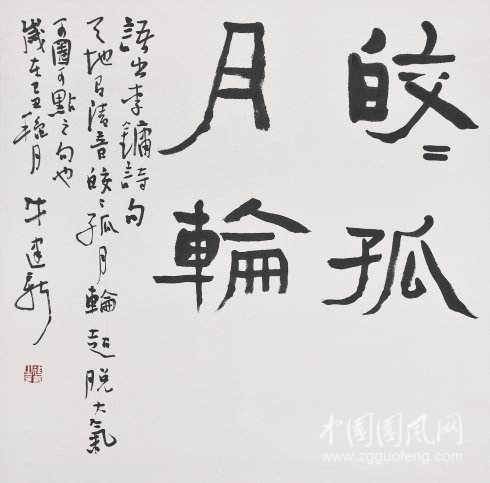 皎〻孤
月輪
語出李鏞詩句
天地清音皎〻孤月輪超脫大氣
可圈可點之句也
歲在己丑穐月 牛建新
中国国风网
www.zgguofeng.com